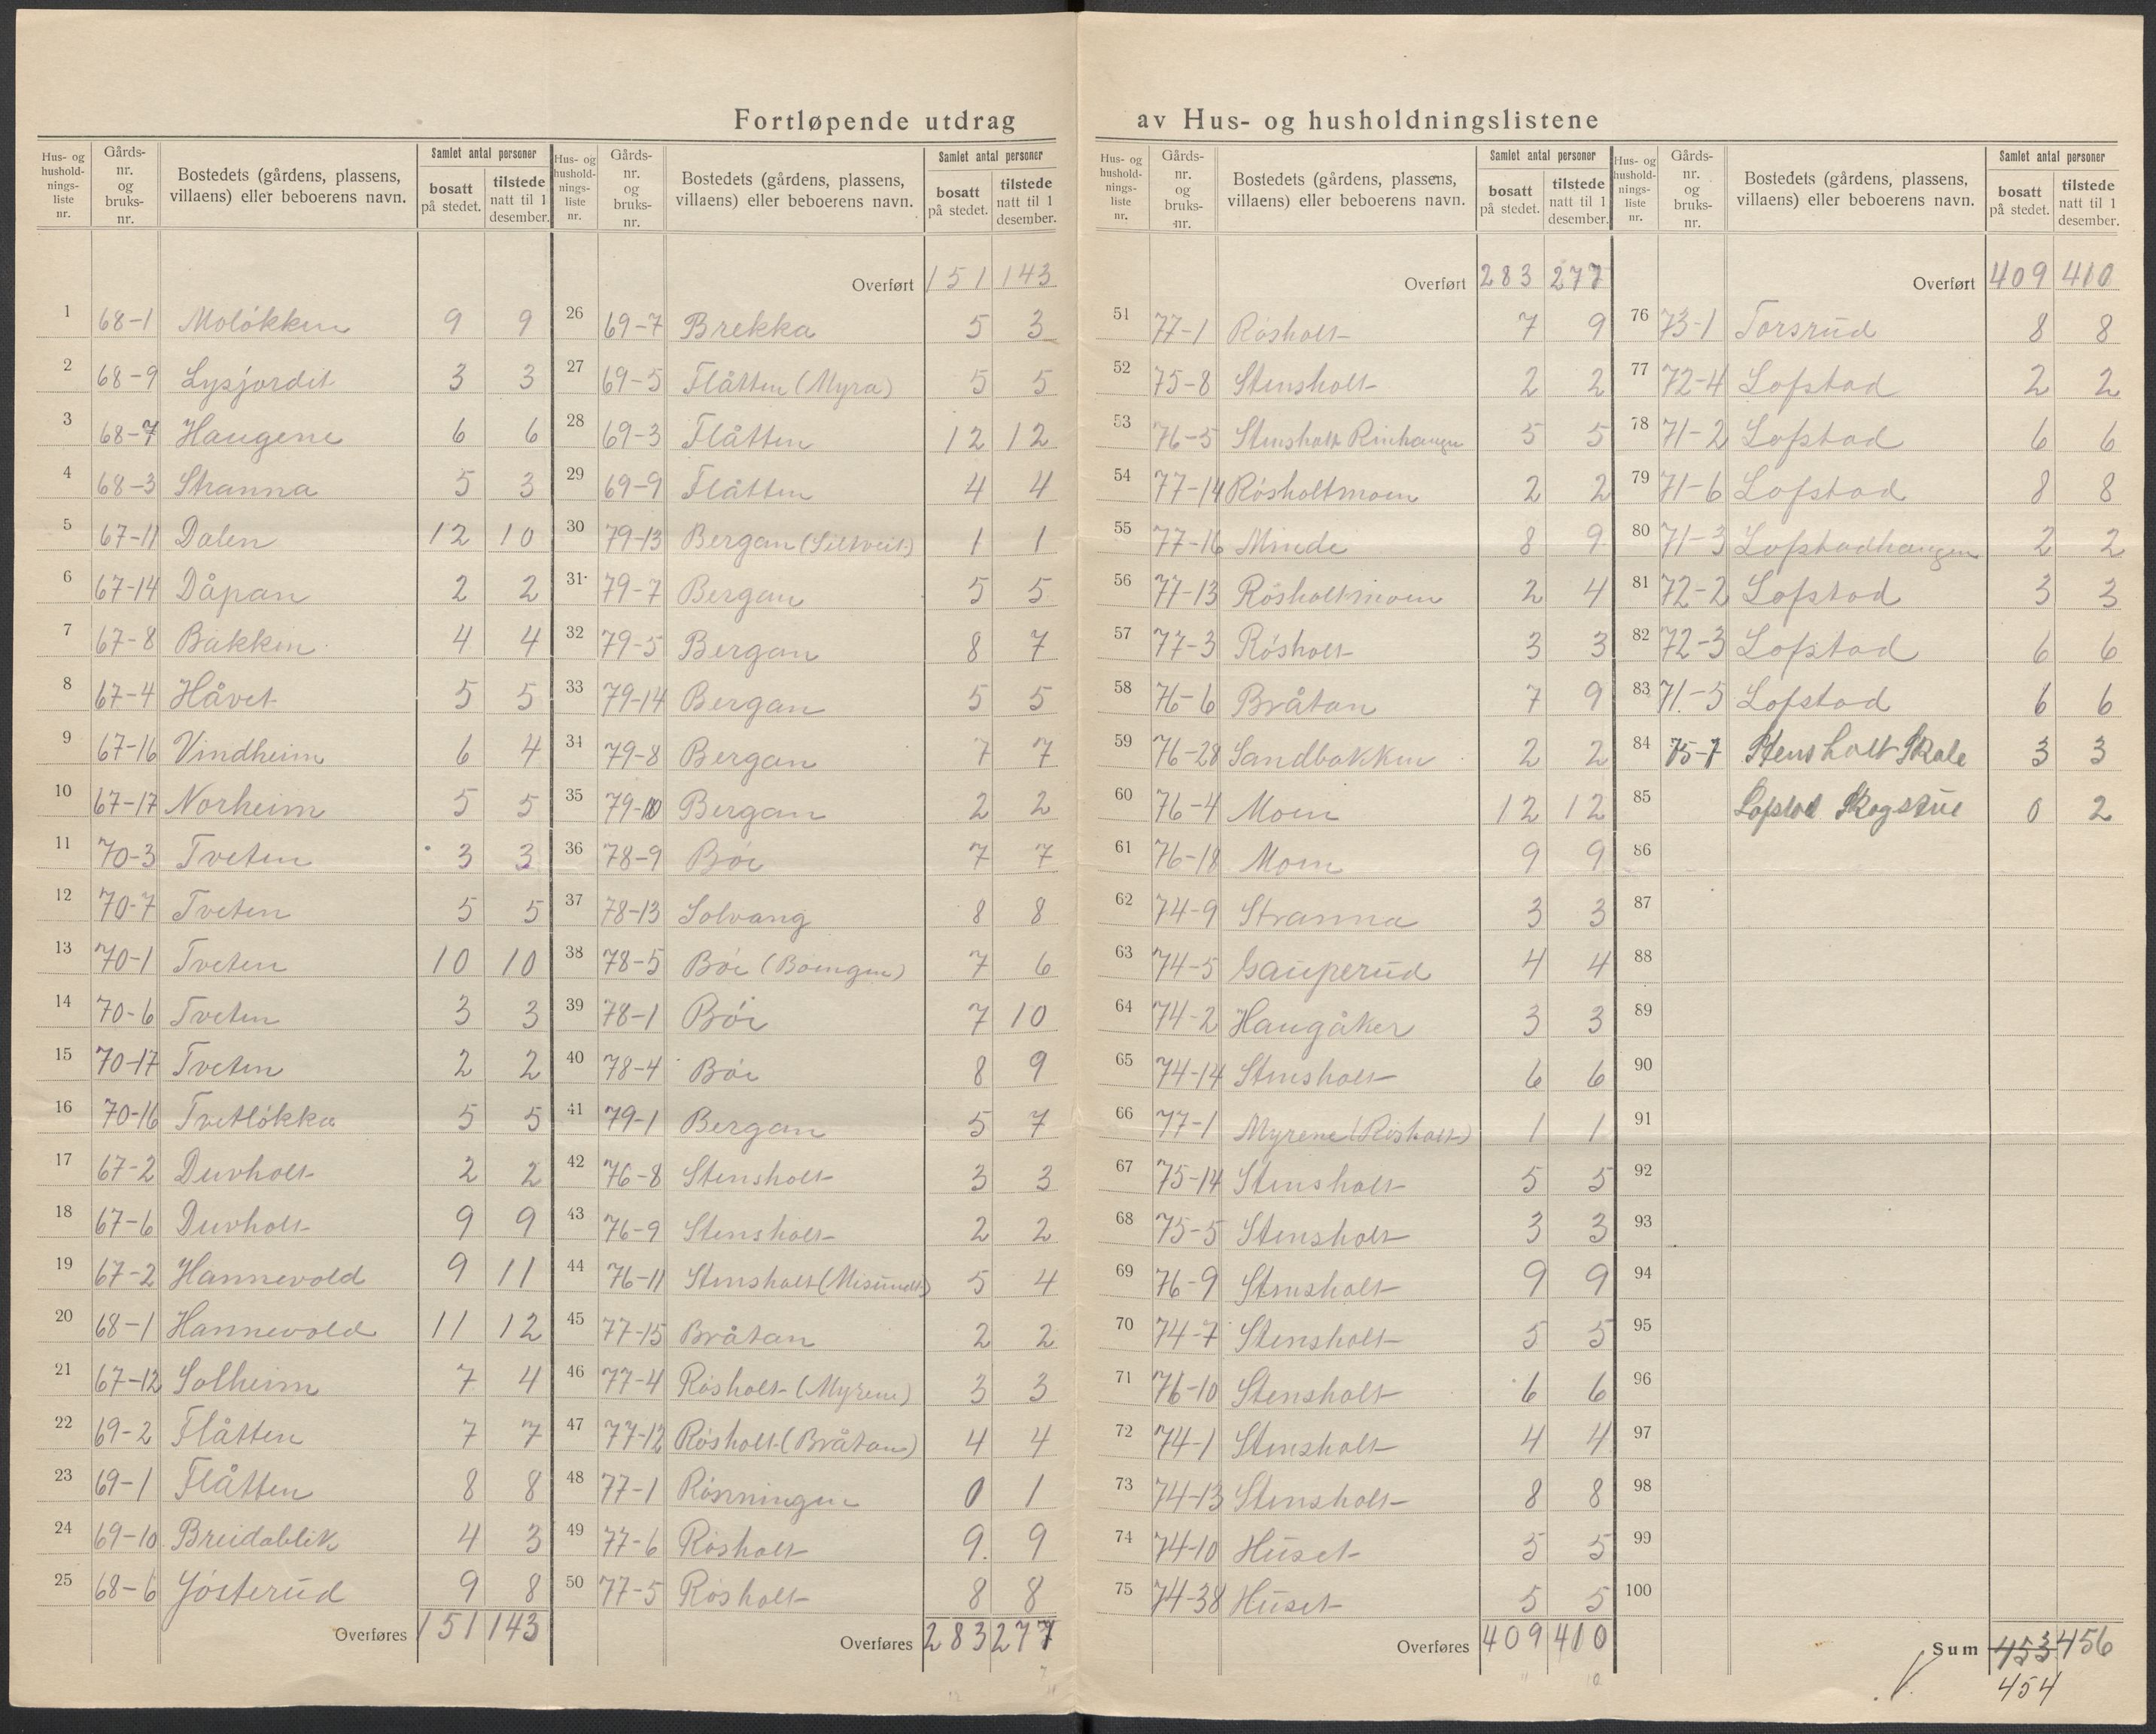 Fortløpende utdrag av Hus- og husholdningslistene
Hus- og husholdningsliste nr.
Gårds-nr. og bruks-nr.
Bostedets (gårdens, plassens, villaens) eller beboerens navn.
Samlet antal personer
bosatt på stedet.
tilstede natt til 1 desember.
1 68-1 Moløkken 9 9
2 68-9 Lysjordet 3 3
3 68-7 Haugene 6 6
4 68-3 Stranna 5 3
5 67-11 Dalen 12 10
6 67-14 Dåpan 2 2
7 67-8 Bakken 4 4
8 67-4 Håvet 5 5
9 67-16 Vindheim 6 4
10 67-17 Norheim 5 5
11 70-3 Tveten 3 3
12 70-7 Tveten 5 5
13 70-1 Tveten 10 10
14 70-6 Tveten 3 3
15 70-17 Tveten 2 2
16 70-16 Tvetløkka 5 5
17 67-2 Duvholt 2 2
18 67-6 Duvholt 9 9
19 67-2 Hannevold 9 11
20 68-1 Hannevold 11 12
21 67-12 Solheim 7 4
22 69-2 Flåtten 7 7
23 69-1 Flåtten 8 8
24 69-10 Breidablik 4 3
25 68-6 Jösterud 9 8
Overføres 151 143
Hus- og husholdningsliste nr.
Gårds-nr. og bruks-nr.
Bostedets (gårdens, plassens, villaens) eller beboerens navn.
Samlet antal personer
bosatt på stedet.
tilstede natt til 1 desember.
Overført 151 143
26 69-7 Brekka 5 3
27 69-5 Flåtten (Myra) 5 5
28 69-3 Flåtten 12 12
29 69-9 Flåtten 4 4
30 79-13 Bergan 1 1
31 79-7 Bergan 5 5
32 79-5 Bergan 8 7
33 79-14 Bergan 5 5
34 79-8 Bergan 7 7
35 79-10 Bergan 2 2
36 78-9 Böe 7 7
37 78-13 Solvang 8 8
38 78-5 Böe (Böengen) 7 6
39 78-1 Böe 7 10
40 78-4 Böe 8 9
41 79-1 Bergan 5 7
42 76-8 Stensholt 3 3
43 76-9 Stensholt 2 2
44 76-11 Stensholt (Misundt) 5 4
45 77-15 Bråtan 2 2
46 77-4 Rösholt (Myrene) 3 3
47 77-12 Rösholt (Bråtan) 4 4
48 77-1 Rösrningen 0 1
49 77-6 Rösholt 9 9
50 77-5 Rösholt 8 8
Overføres 283 277
Hus- og husholdningsliste nr.
Gårds-nr. og bruks-nr.
Bostedets (gårdens, plassens, villaens) eller beboerens navn.
Samlet antal personer
bosatt på stedet.
tilstede natt til 1 desember.
Overført 283 277
51 77-1 Rösholt 7 9
52 75-8 Stensholt 2 2
53 76-5 Stensholt 5 5
54 77-14 Rösholtmoen 2 2
55 77-16 Minde 8 9
56 77-13 Rösholtmoen 2 4
57 77-3 Rösholt 3 3
58 76-6 Bråtan 7 9
59 76-28 Sandbakken 2 2
60 76-4 Moen 12 12
61 76-18 Moen 9 9
62 74-9 Stranna 3 3
63 74-5 Gauperud 4 4
64 74-2 Haugåker 3 3
65 74-14 Stensholt 6 6
66 77-1 Myrene (Rösholt) 1 1
67 75-14 Stensholt 5 5
68 75-5 Stensholt 3 3
69 76-9 Stensholt 9 9
70 74-7 Stensholt 5 5
71 76-10 Stensholt 6 6
72 74-1 Stensholt 4 4
73 74-13 Stensholt 8 8
74 74-10 Huset 5 5
75 74-38 Huset 5 5
Overføres 409 410
Hus- og husholdningsliste nr.
Gårds-nr. og bruks-nr.
Bostedets (gårdens, plassens, villaens) eller beboerens navn.
Samlet antal personer
bosatt på stedet.
tilstede natt til 1 desember.
Overført 409 410
76 73-1 Torsrud 8 8
77 72-4 Lofstad 2 2
78 71-2 Lofstad 6 6
79 71-6 Lofstad 8 8
80 71-3 Lofstadhaugen 2 2
81 72-2 Lofstad 3 3
82 72-3 Lofstad 6 6
83 71-5 Lofstad 6 6
84 75-7 Stensholt Skole 3 3
85 Lofstad Skogstue 0 2
86
87
88
89
90
91
92
93
94
95
96
97
98
99
100
Sum 453 456
454